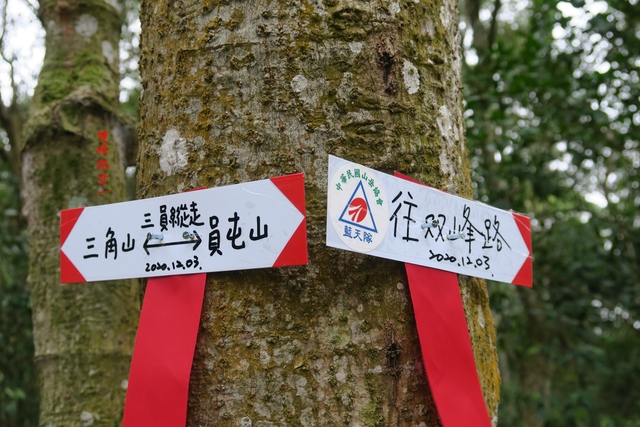 三員縱走
三角山 ↔ 員屯山
2020.12.03.
中華民國山岳協會
藍天隊
往双峰路
2020.12.03.